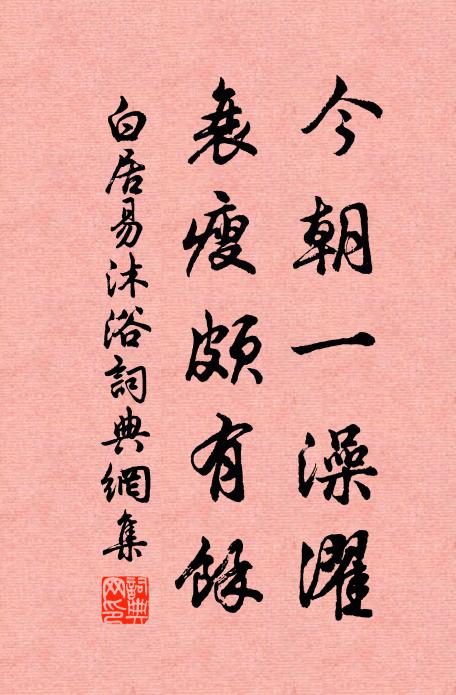 今朝一澡濯
衰瘦頗有餘
白居易沐浴詞典網集
詞典網印